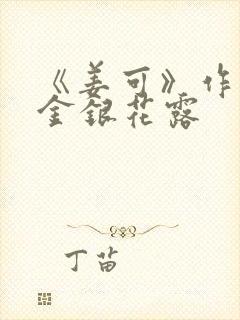 《姜可》作
金银花露
丁苗